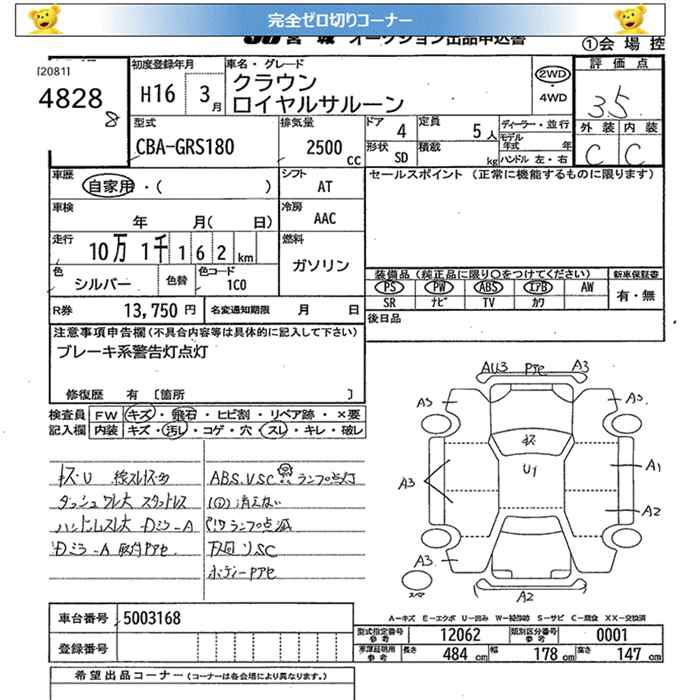 完全ゼロ切りコーナー
JU宮城 オークション出品申込書
①会場控
[2081]
4828
8
初度登録年月
H16 3月
車名・グレード
クラウン
ロイヤルサルーン
2WD
・
4WD
評価点
3.5
外装 内装
C C
型式
CBA-GRS180
排気量
2500 CC
ドア 4
定員 5人
形状 SD
積載 kg
ディーラー・並行
モデル年式 年
ハンドル 左・右
車歴
自家用・( )
シフト AT
セールスポイント (正常に機能するものに限ります)
車検
年 月( 日)
冷房 AAC
走行
10万 1千 162 km
燃料
ガソリン
色 シルバー
色替
色コード 1C0
装備品 (純正品に限り○をつけてください)
新車保証書
PS PW ABS エアB AW
SR ナビ TV カワ
有・無
R券 13,750 円
名変通知期限 月 日
後日品
注意事項申告欄 (不具合内容等は具体的に記入して下さい)
ブレーキ系警告灯点灯
修復歴 有 [箇所 ]
検査員
記入欄
FW キズ・飛石・ヒビ割・リペア跡・×要
内装 キズ・汚れ・コゲ・穴・スレ・キレ・破レ
キズ・U 線スレ
ダッシュワレ大 スタットレス
ハンドルスレ大 Dミラ-A
Dミラ-A 取付
ABS.VSC ランプ点灯
消えない
P ランプ点滅
下回りSC
AU3 A3
A3 A3
キズ
U1
A3 A1
A2
A3
スペア
A2
A-キズ E-エクボ U-凹み W-補修跡 S-サビ C-腐食 XX-交換済
車台番号 5003168
登録番号
型式指定番号 参考 12062
類別区分番号 参考 0001
参考 長さ 484 cm 幅 178 cm 高さ 147 cm
希望出品コーナー (コーナーは各会場により異なります。)